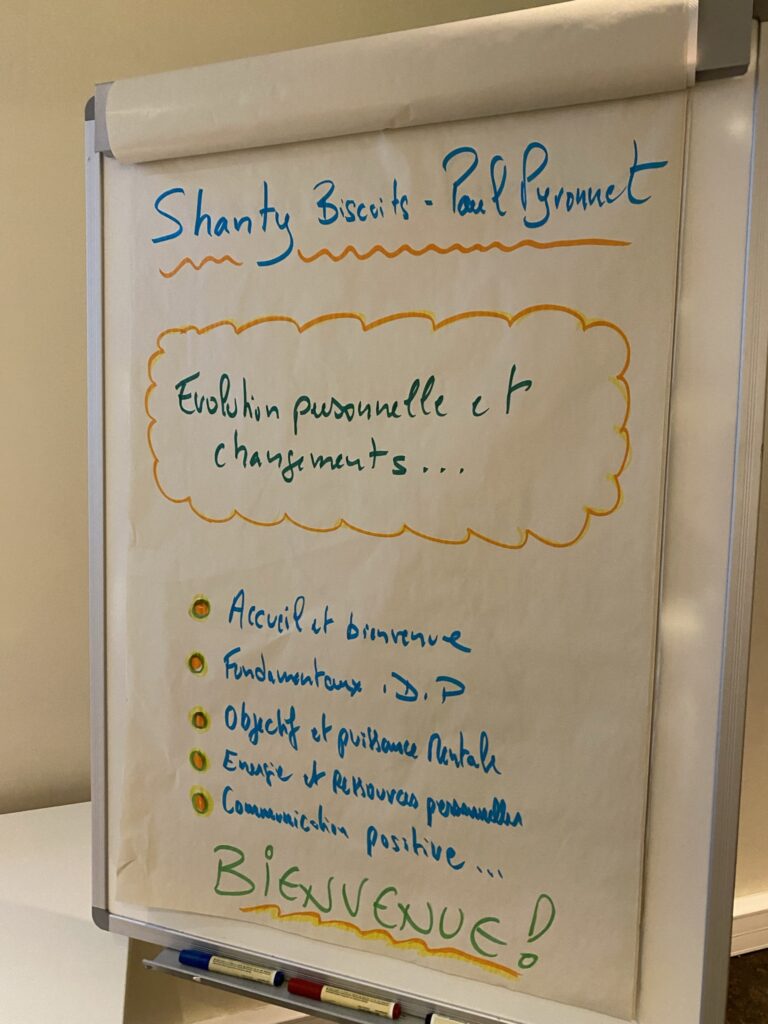 Shanty Biscuits - Paul Pyronnet
Evolution personnelle et
changements...
Accueil et bienvenue
Fondamentaux .D.P
Objectif et puissance Mentale
Energie et Ressources personnelles
Communication positive...
BIENVENUE!